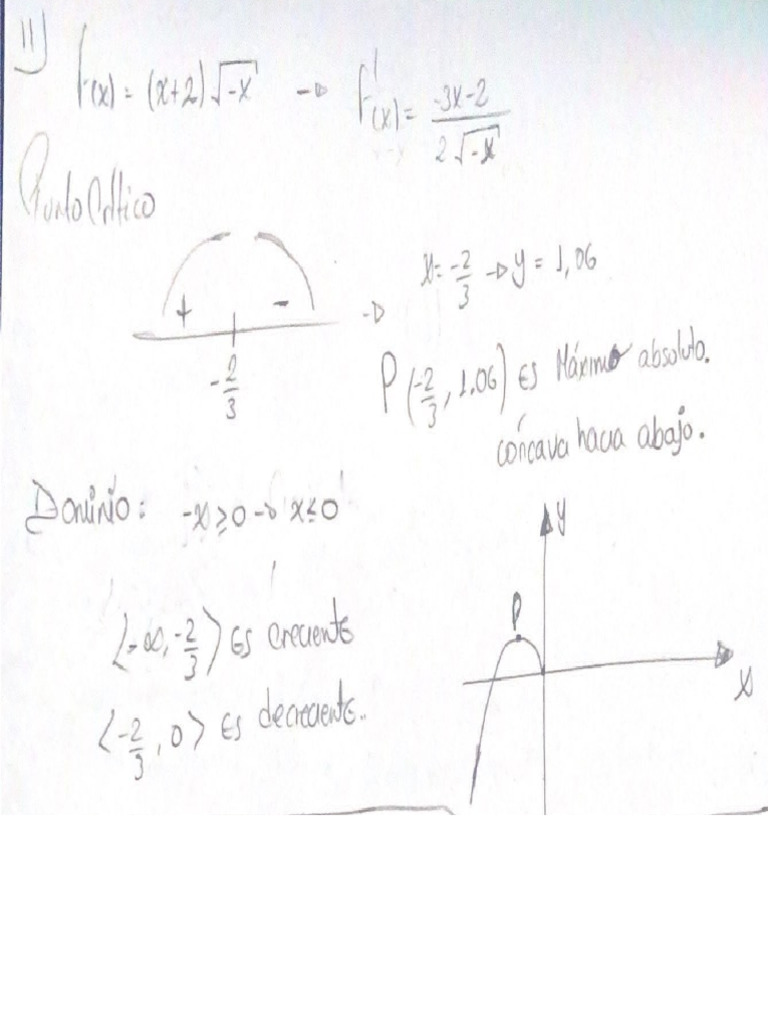 11)
f(x) = (x+2)√-x → f'(x) = -3x-2 / 2√-x
Punto Crítico
+ -
-2/3
→ x = -2/3 → y = 1,06
P(-2/3, 1.06) es Máximo absoluto.
cóncava hacia abajo.
Dominio: -x ≥ 0 → x ≤ 0
⟨-∞, -2/3⟩ es creciente
⟨-2/3, 0⟩ es decreciente.
y
P
x